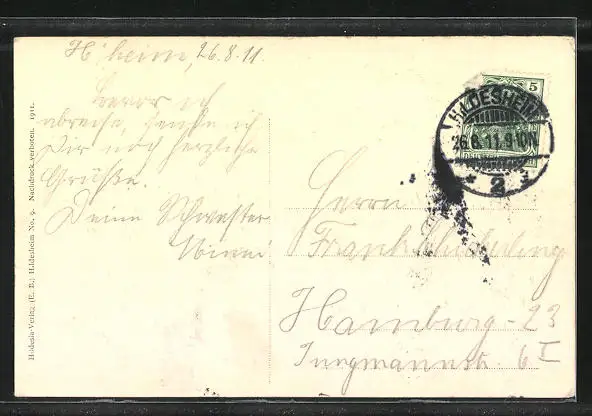 H'heim, 26.8.11.
Bevor ich
abreise, sende ich
Dir noch herzliche
Grüße.
Deine Schwester
Minni
Herrn
Frank
Hamburg-23
Jungmannstr. 6 I
HILDESHEIM
26.8.11.9-10V
2
5
Hildesia-Verlag (E. B.), Hildesheim No. 9. Nachdruck verboten. 1911.